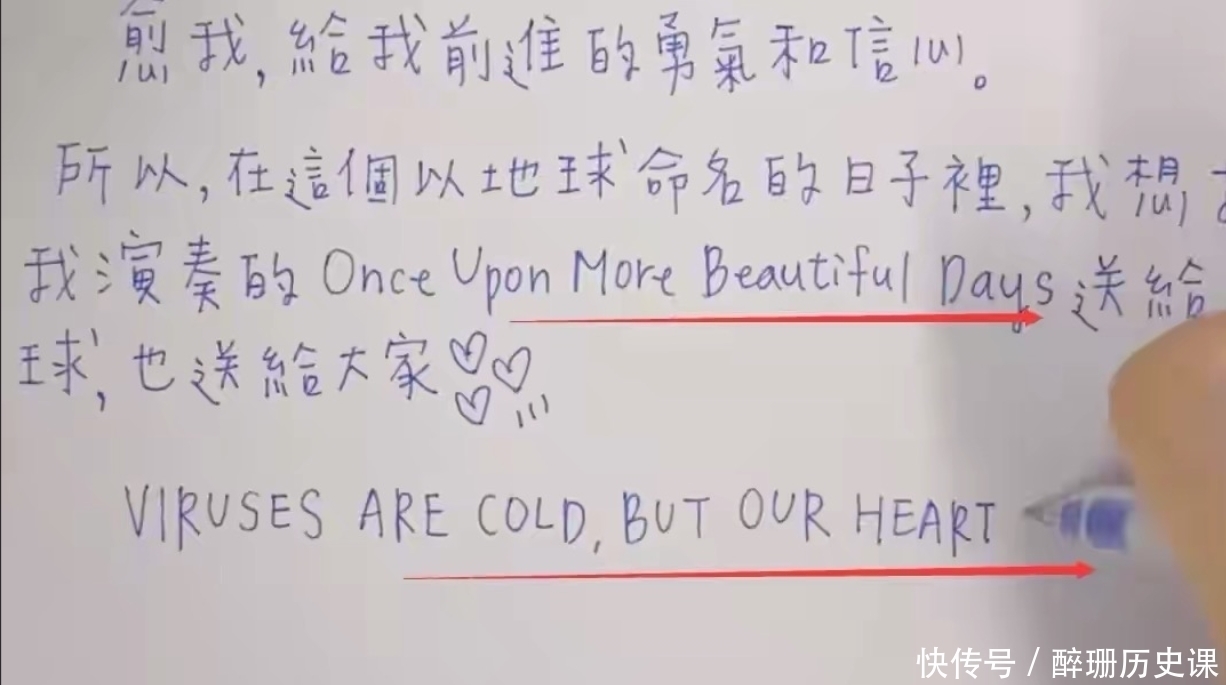 愈我,給我前進的勇氣和信心。
所以,在這個以地球命名的日子裡,我想
我演奏的 Once Upon More Beautiful Days 送給
球,也送給大家
VIRUSES ARE COLD, BUT OUR HEART
快传号 / 醉珊历史课